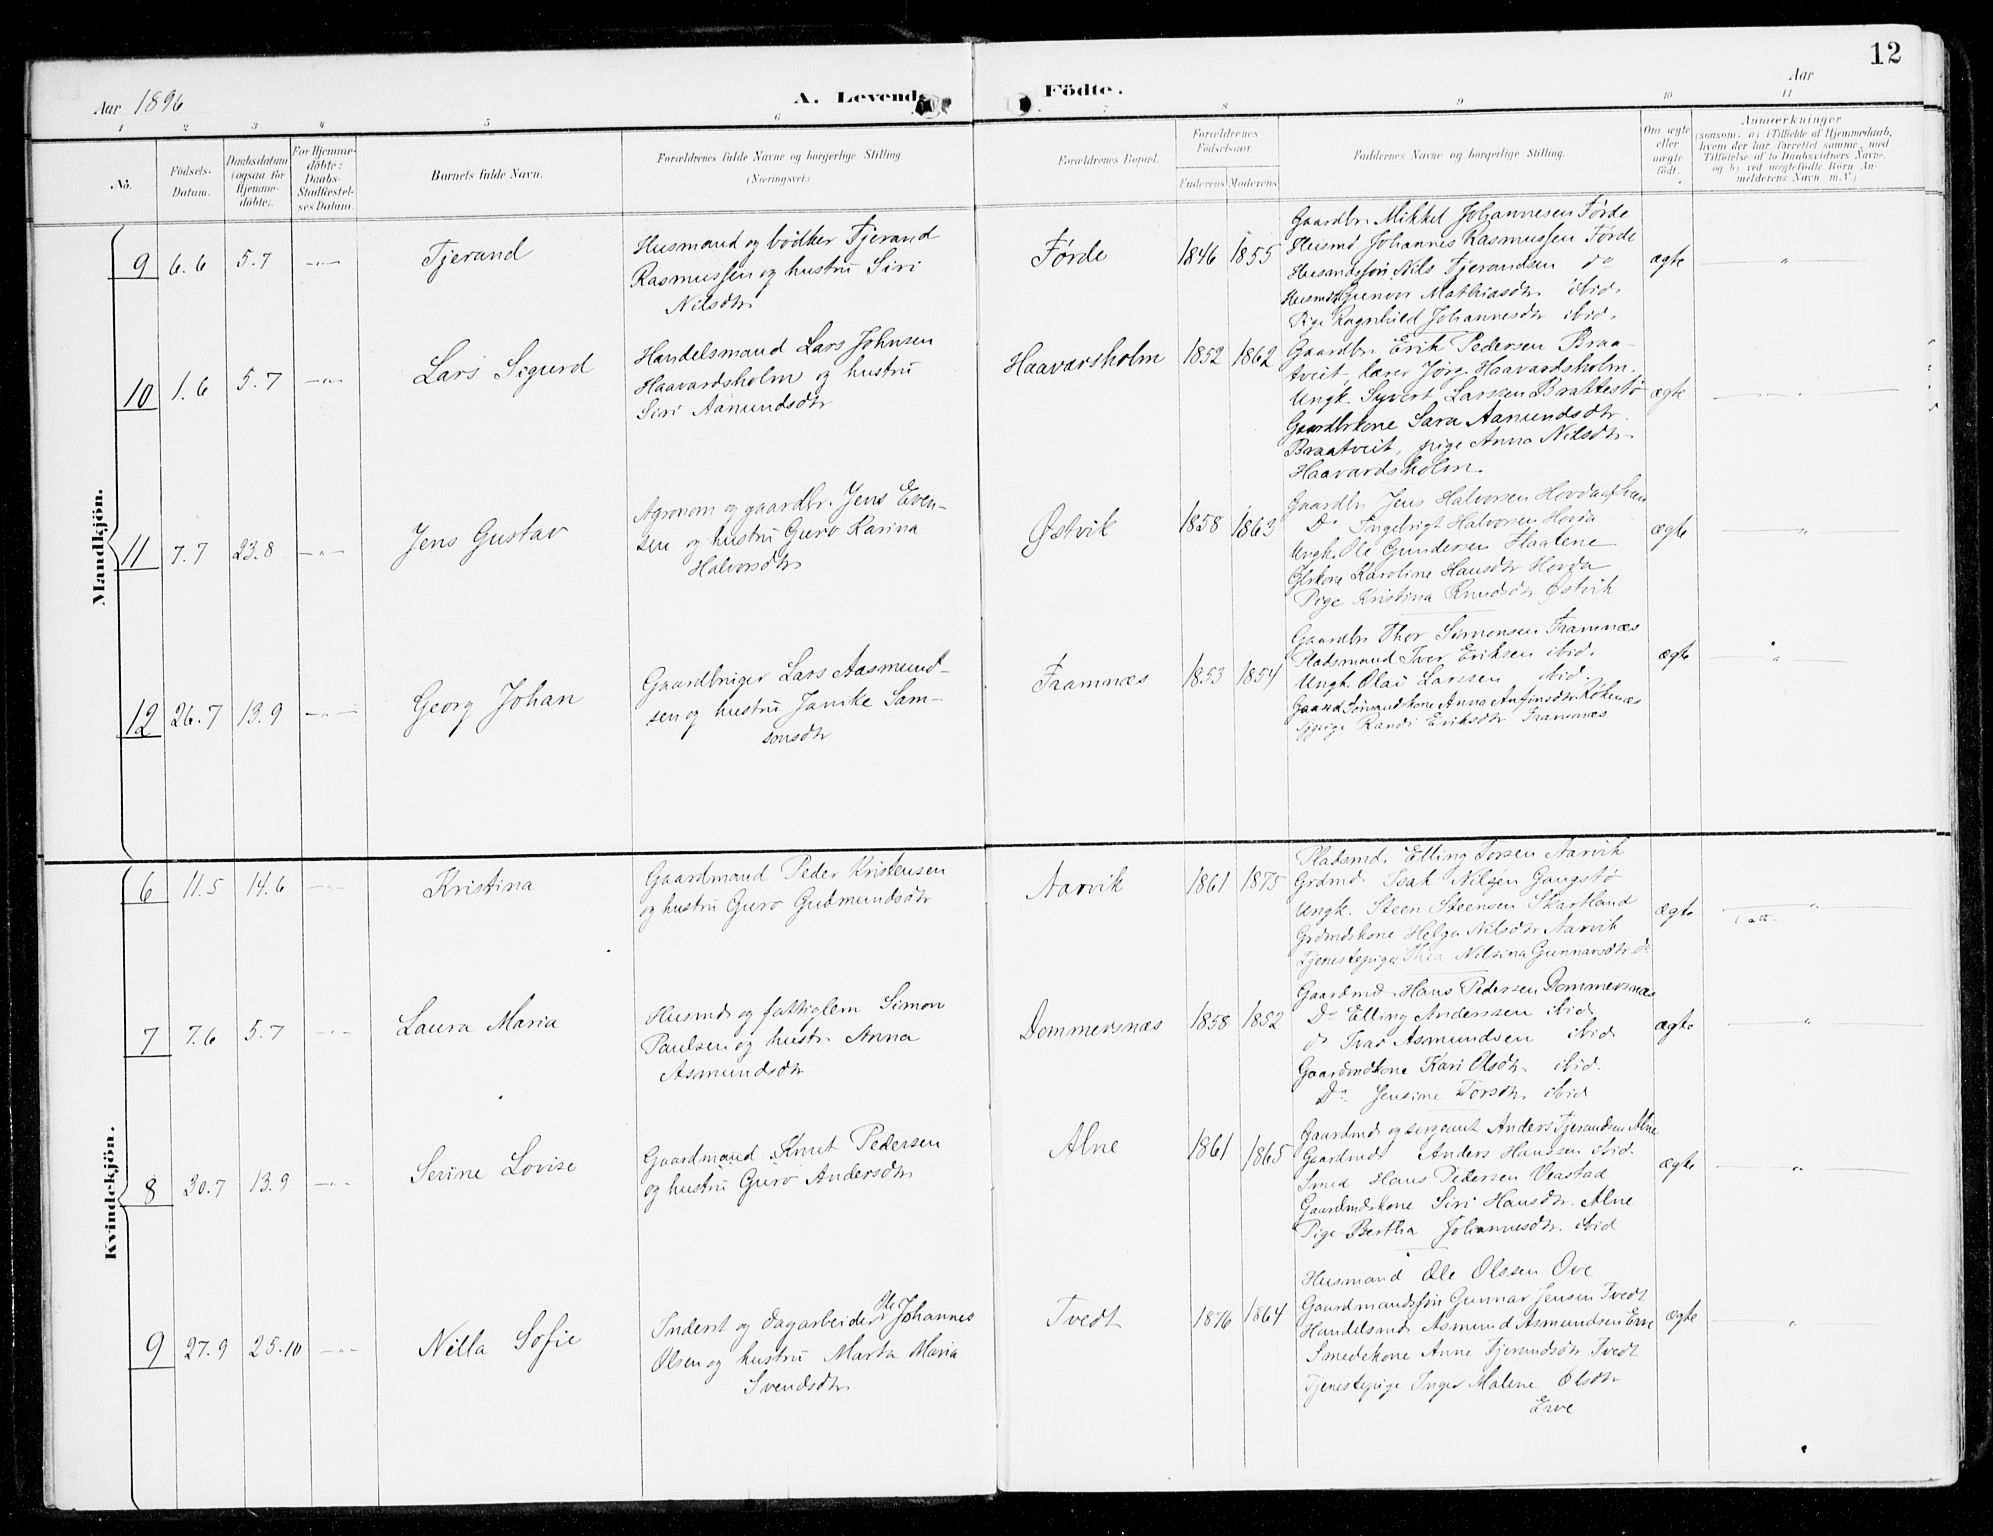 12
Aar 1896
A. Levende Födte.
Aar
1 2 3 4 5 6 7 8 9 10 11
No.
Födsels-Datum.
Daabsdatum (ogsaa for Hjemmedöbte).
For Hjemmedöbte: Daabs-Stadfæstelses Datum.
Barnets fulde Navn.
Forældrenes fulde Navne og borgerlige Stilling (Næringsvei)
Forældrenes Bopæl.
Forældrenes Födselsaar
Faderens Moderens
Faddernes Navne og borgerlige Stilling.
Om ægte eller uægte födt.
Anmærkninger (saasom: a) i Tilfælde af Hjemmedaab, hvem der har forrettet samme, med Tilföielse af to Daabsvidners Navne, og b) ved uægtefödte Börn Anmelderens Navn m. V.)
Mandkjön.
9 6.6 5.7 —„— Tjerand
Husmand og bødker Tjerand
Rasmussen og hustru Siri
Nilsdtr
Førde 1846 1855
Gaardbr. Mikkel Johannesen Førde
Husmd Johannes Rasmussen Førde
Husmandssøn Nils Tjerandsen do
Gunvor Mathiasdtr ibid.
Pige Ragnhild Johannesdtr ibid.
ægte —„—
10 1.6 5.7 —„— Lars Sigurd
Handelsmand Lars Johnsen
Haavardsholm og hustru
Siri Aamundsdtr
Haavarsholm 1852 1862
Gaardbr. Erik Pedersen Braa-
tveit, lærer Jørg. Haavardsholm.
Ungk. Syvert Larssen Brattestø
Gaardbrkone Sara Aamundsdtr.
Braatveit, pige Anna Nilsdtr
Haavardsholm.
ægte
11 7.7 23.8 —„— Jens Gustav
Agronom og gaardbr. Jens Even-
sen og hustru Guro Karina
Halvorsdtr
Østvik 1858 1863
Gaardbr Jens Halvorsen Hovda
Do Ingebrigt Halvorsen Hovda
Ungk. Ole Gundersen Haatene
Karoline Hansdtr Hovda
Pige Kristina Knudsdtr Østvik
ægte „
12 26.7 13.9 —„— Georg Johan
Gaardbruger Lars Aasmund-
sen og hustru Janike Sam-
sonsdtr
Framnæs 1853 1854
Gaardbr Thor Simonsen Framnæs
Pladsmand Iver Eriksen ibid.
Ungk. Olai Larssen ibid.
Anna
pige Randi Eriksdtr Framnæs
ægte „
Kvindekjön.
6 11.5 14.6 —„— Kristina
Gaardmand Peder Kristensen
og hustru Guro Gudmundsdtr
Aarvik 1861 1875
Pladsmd. Elling Torsen Aarvik
Grdmd. Isak Nilsen Gangstø
Ungk. Steen Steensen Skartland
Grdmdskone Helga Nilsdtr Aarvik
Tjenestepige Thea Nilsina Gunnarsdtr do
ægte „
7 7.6 5.7 —„— Laura Maria
Husmd og fattiglem Simon
Paulsen og hustr. Anna
Asmundsdtr
Dommersnæs 1858 1852
Gaardmd. Hans Pedersen Dommersnæs
Do Elling Anderssen ibid
do Ivar Asmundsen ibid
Gaardmdkone Kari Olsdtr. ibid.
Do Jensine Torsdtr. ibid
ægte „
8 30.7 13.9 —„— Serine Lovise
Gaardmand Knut Pedersen
og hustru Guro Andersdtr
Alne 1861 1865
Gaardmd og sergeant Anders Tjerandsen Alne
Gaardmd Anders Hanssen ibid.
Smed Hans Pedersen Veastad
Gaardmdskone Siri Hansdtr. Alne
Pige Bertha Johannesdtr. ibid
ægte „
9 27.9 25.10 —„— Nilla Sofie
Inderst og dagarbeider Ole Johannes
Olsen og hustru Marta Maria
Svendsdtr
Tvedt 1876 1864
Husmand Ole Olssen Ove
Gaardmandssøn Gunnar Jensen Tvedt
Handelsmd Asmund Asmundsen Erve
Smedekone Anne Tjerandsdtr Tvedt
Tjenestepige Inger Malene Olsdtr
Erve
ægte „